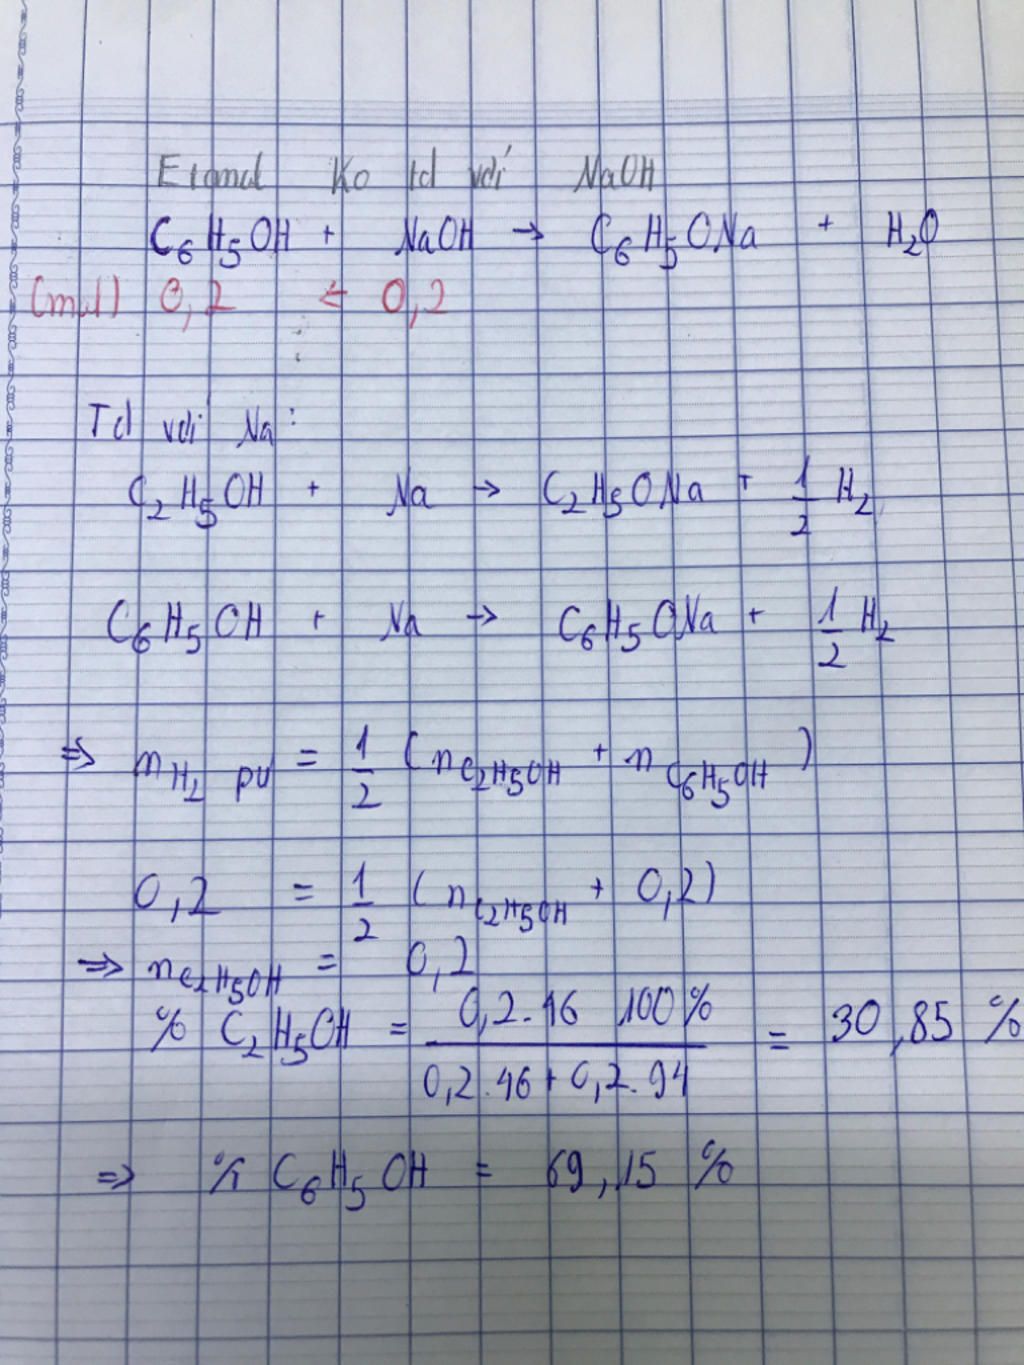 Etanol Ko td với NaOH
C₆H₅OH + NaOH → C₆H₅ONa + H₂O
(mol) 0,2 ← 0,2
Td với Na:
C₂H₅OH + Na → C₂H₅ONa + 1/2 H₂
C₆H₅OH + Na → C₆H₅ONa + 1/2 H₂
⇒ n H₂ pư = 1/2 (n C₂H₅OH + n C₆H₅OH)
0,2 = 1/2 (n C₂H₅OH + 0,2)
⇒ n C₂H₅OH = 0,2
% C₂H₅OH = 0,2.46 100% / 0,2.46 + 0,2.94 = 30,85 %
⇒ % C₆H₅OH = 69,15 %